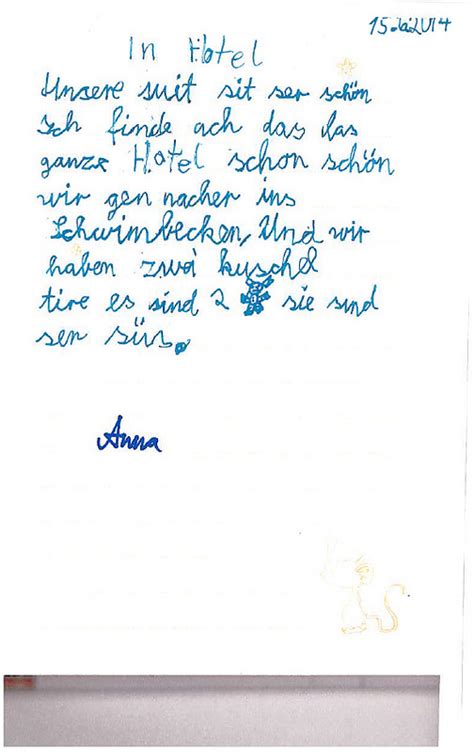 In Hotel
Unsere suit sit ser schön
Ich finde ach das das
ganze Hotel schon schön
wir gen nacher ins
Schwimbecken, Und wir
haben zwai kuschel
tire es sind 2 sie sind
ser süs.
Anna